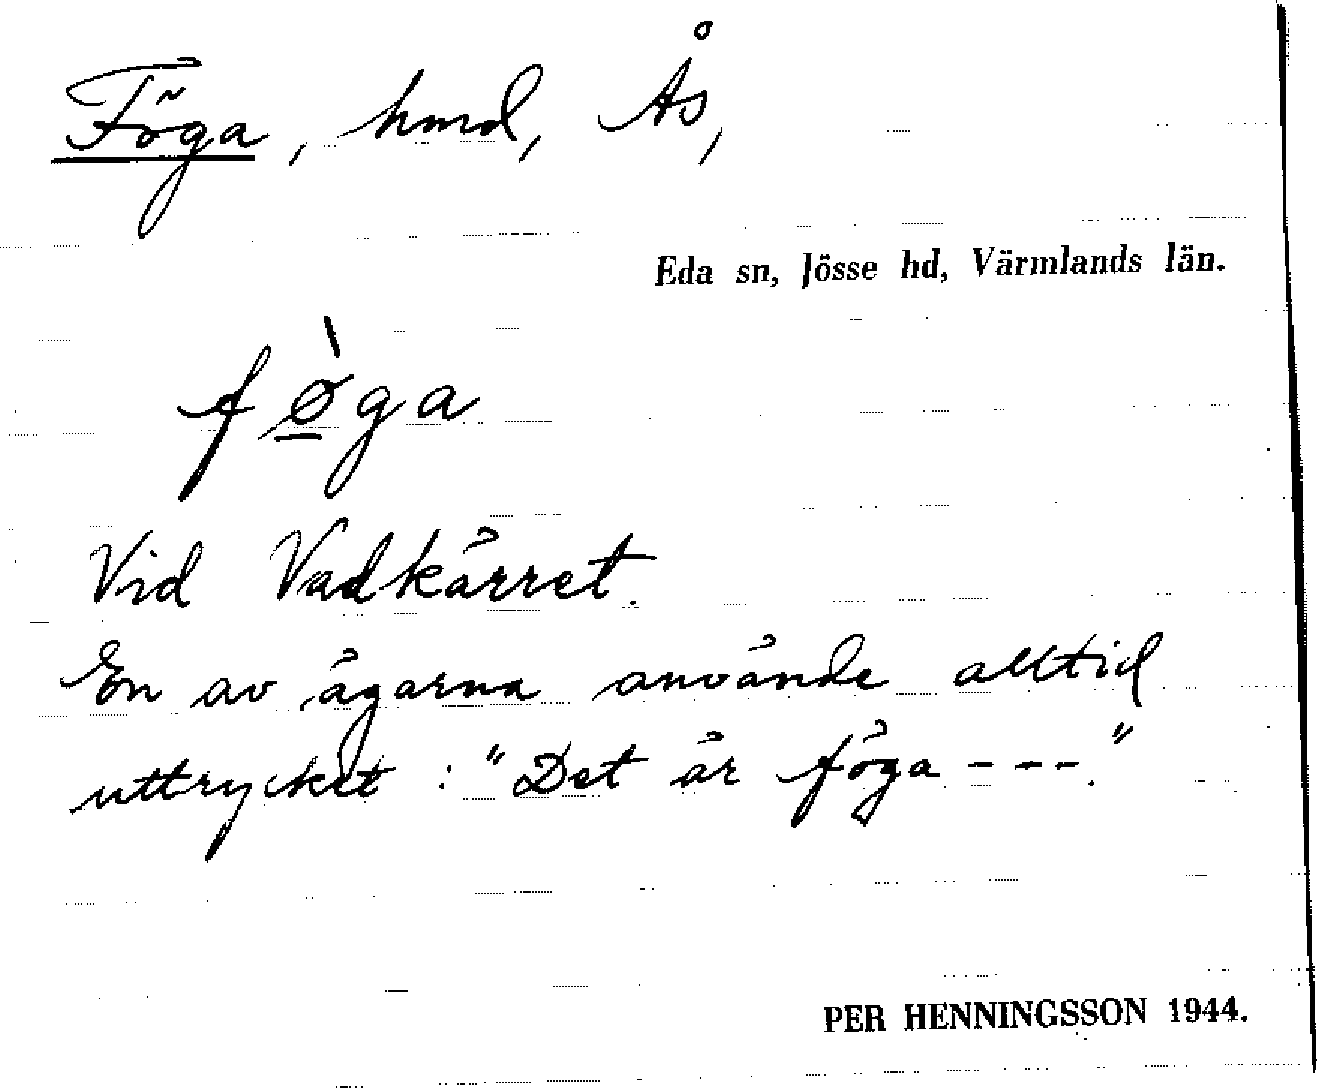 Föga, hmd, Ås,
Eda sn, Jösse hd, Värmlands län.
fø̱̀ga
Vid Vadkärret.
En av ägarna använde alltid
uttrycket : "Det är föga - - -."
PER HENNINGSSON 1944.